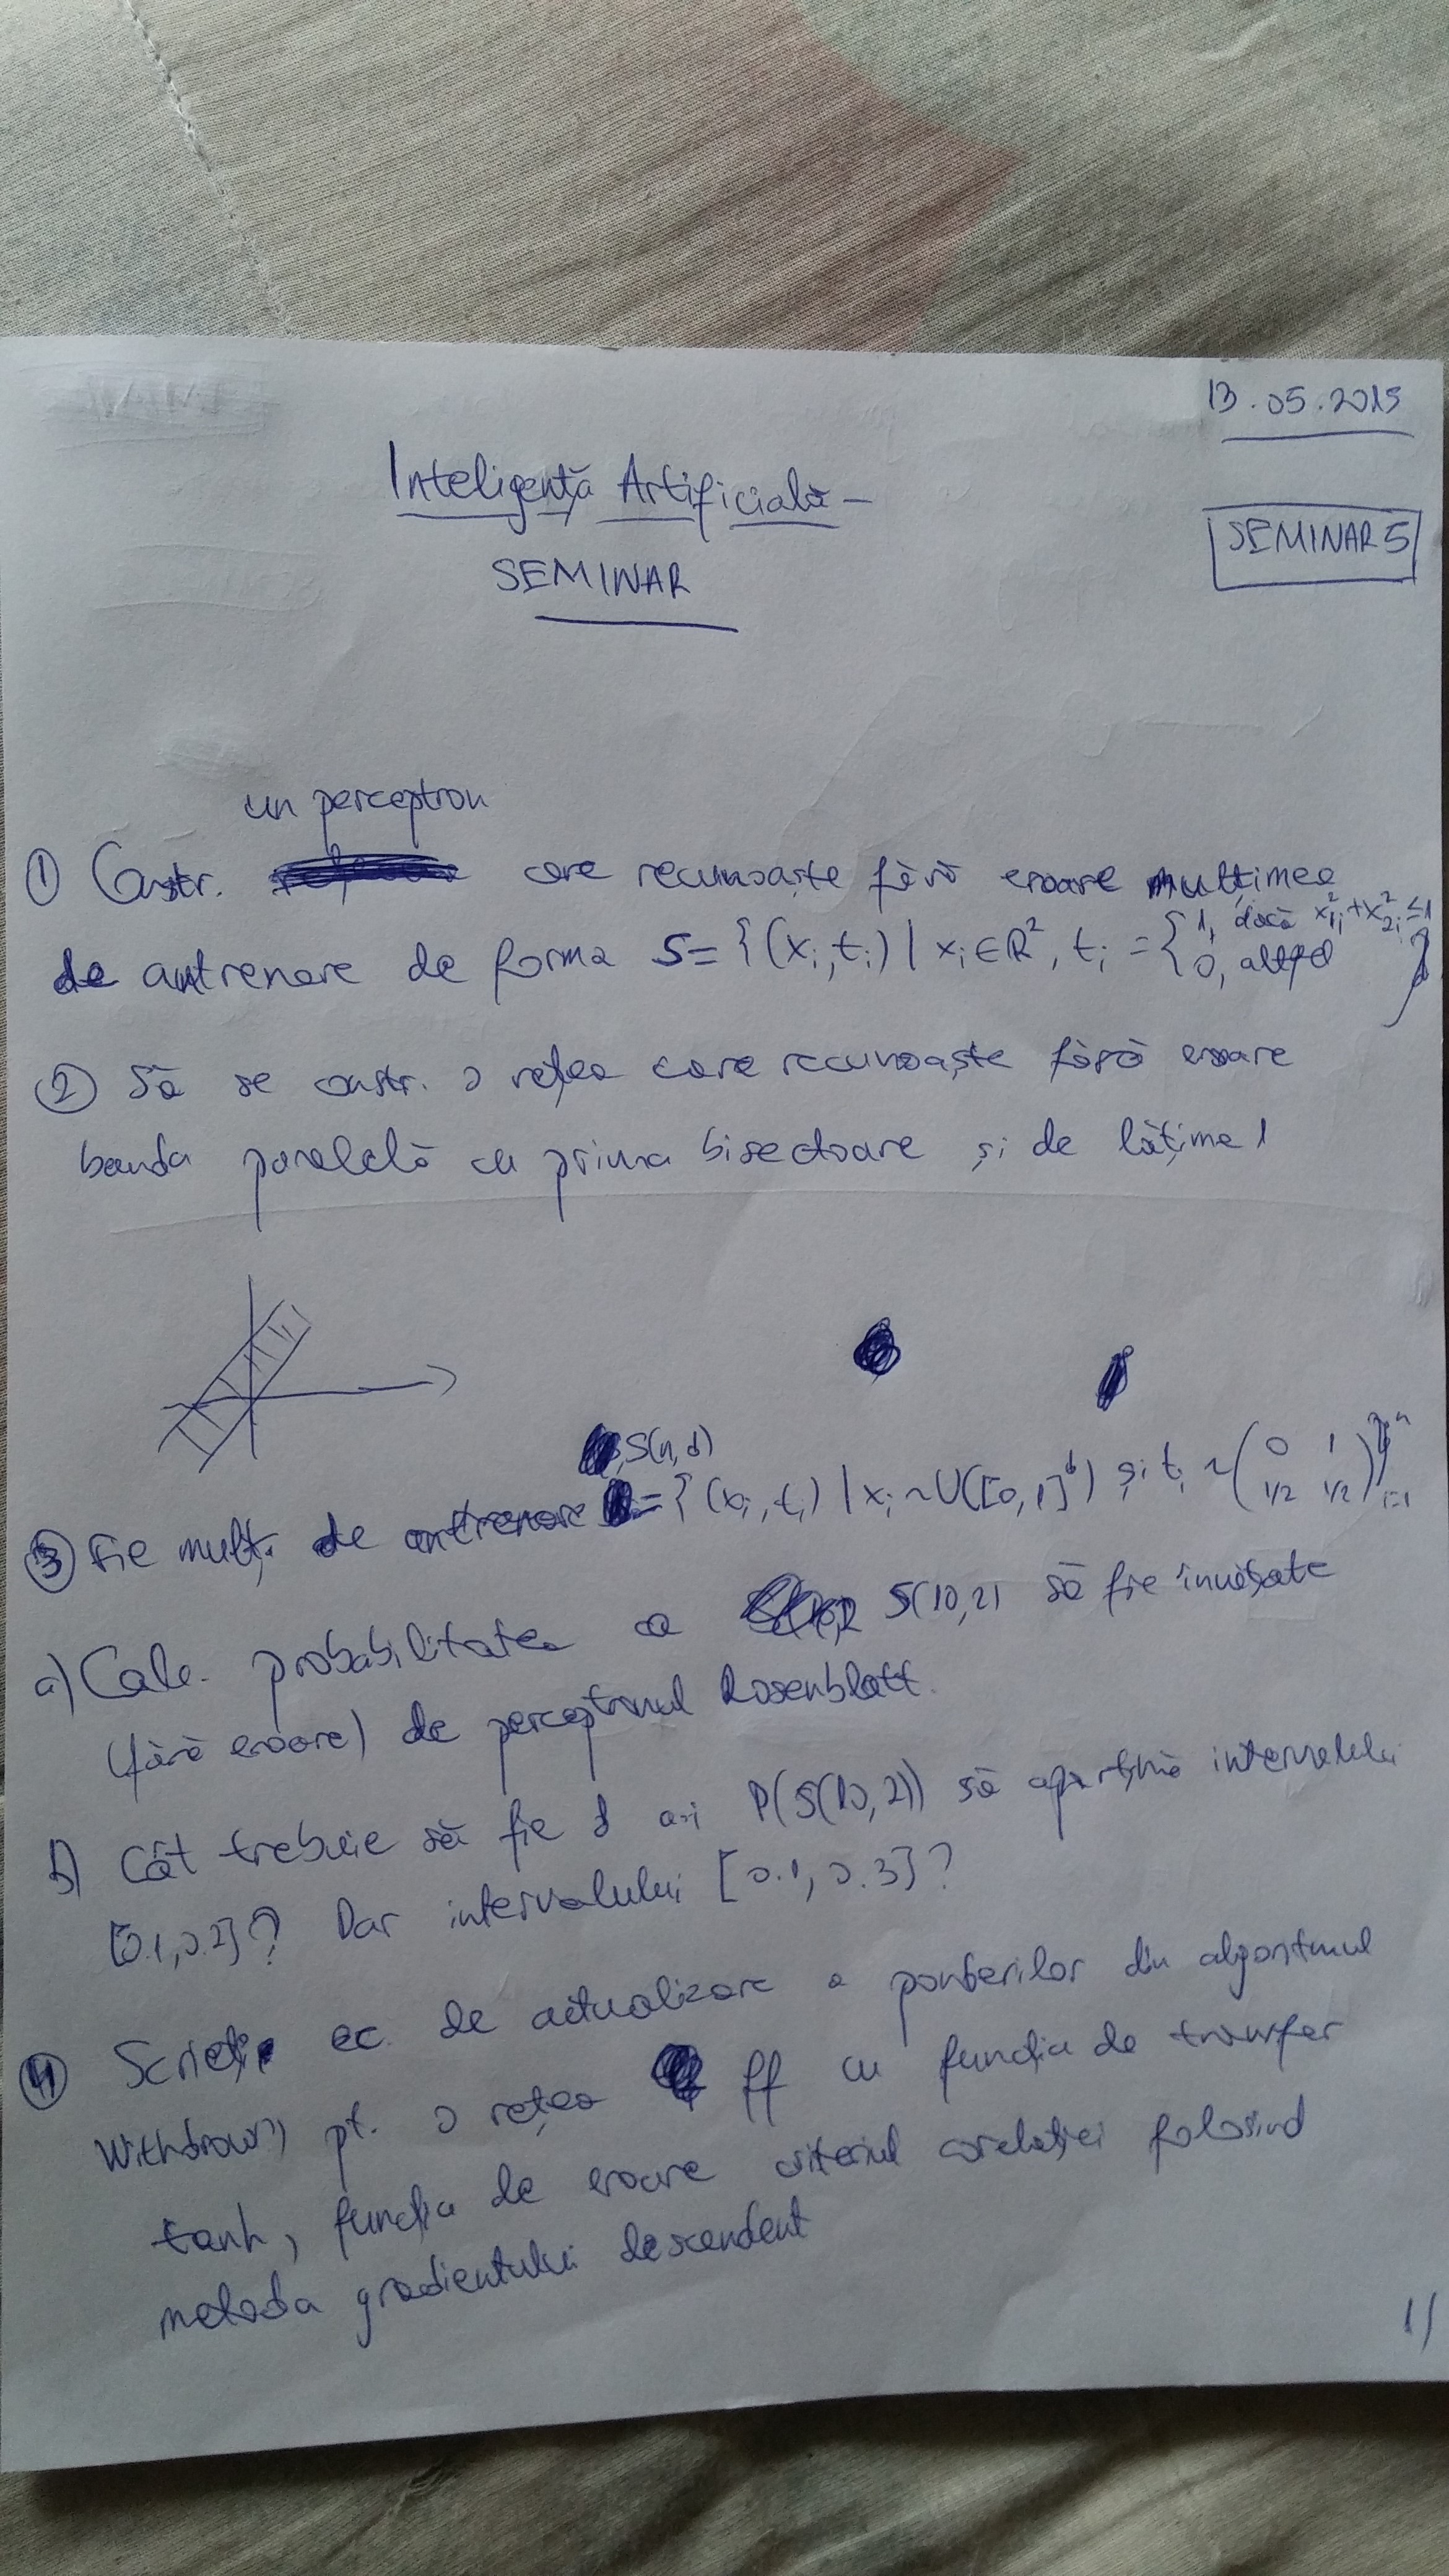 13.05.2019
Inteligență Artificială -
SEMINAR
SEMINAR 5
un perceptron
① Constr. care recunoaște fără eroare mulțimea
de antrenare de forma S = {(xᵢ, tᵢ) | xᵢ ∈ R², tᵢ = {1, dacă x₁ᵢ² + x₂ᵢ² ≤ 1
0, altfel }
② Să se constr. o rețea care recunoaște fără eroare
banda paralelă cu prima bisectoare și de lățime 1
, S(n, d)
③ Fie mulț. de antrenare = {(xᵢ, tᵢ) | xᵢ ~ U([0,1]ᵈ) și tᵢ ~ (0 1
1/2 1/2)}ⁿᵢ₌₁
a) Calc. probabilitatea ca S(10,2) să fie învățate
(fără eroare) de perceptronul Rosenblatt.
b) Cât trebuie să fie d a.i P(S(10,2)) să aparțină intervalului
[0.1, 0.2]? Dar intervalului [0.1, 0.3]?
④ Scrieți ec. de actualizare a ponderilor din algoritmul
pt. o rețea ff cu funcția de transfer
tanh, funcția de eroare criteriul corelației folosind
metoda gradientului descendent
1/